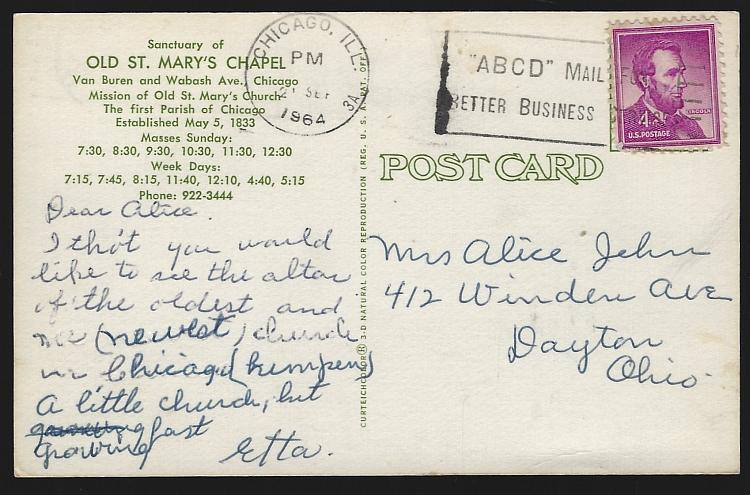 Sanctuary of
OLD ST. MARY'S CHAPEL
Van Buren and Wabash Ave., Chicago
Mission of Old St. Mary's Church
The first Parish of Chicago
Established May 5, 1833
Masses Sunday:
7:30, 8:30, 9:30, 10:30, 11:30, 12:30
Week Days:
7:15, 7:45, 8:15, 11:40, 12:10, 4:40, 5:15
Phone: 922-3444
Dear Alice.
I tho't you would
like to see the altar
of the oldest and
(newest) church
in Chicago
A little church, but
fast
growing
Etta.
CURTEICHCOLOR® 3-D NATURAL COLOR REPRODUCTION (REG. U. S. A. PAT. OFF.)
CHICAGO, ILL.
PM
21 SEP
3A
1964
"ABCD" MAIL FOR
BETTER BUSINESS
4¢
LINCOLN
U.S. POSTAGE
POST CARD
Mrs Alice John
412 Winden Ave
Dayton
Ohio.